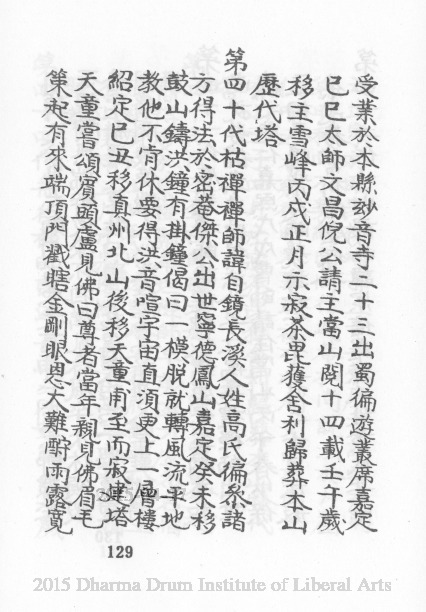 受業於本縣玅音寺二十三出蜀偏遊叢席嘉定
己巳太師文昌倪公請主當山閱十四載壬午歲
移主雪峰丙戌正月示寂茶毘獲舍利歸葬本山
歷代塔
第四十代枯禪禪師諱自鏡長溪人姓高氏徧叅諸
方得法於密菴傑公出世寧德鳳山嘉定癸未移
鼓山鑄洪鐘有掛鐘偈曰一模脫就轉風流平地
教他不肯休要得洪音喧宇宙直須更上一層樓
紹定己丑移真州北山後移天童甫至而寂建塔
天童嘗頌賓頭盧見佛曰尊者當年親見佛眉毛
策起有來端頂門戳瞎金剛眼恩大難酬雨露寬
129
2015 Dharma Drum Institute of Liberal Arts